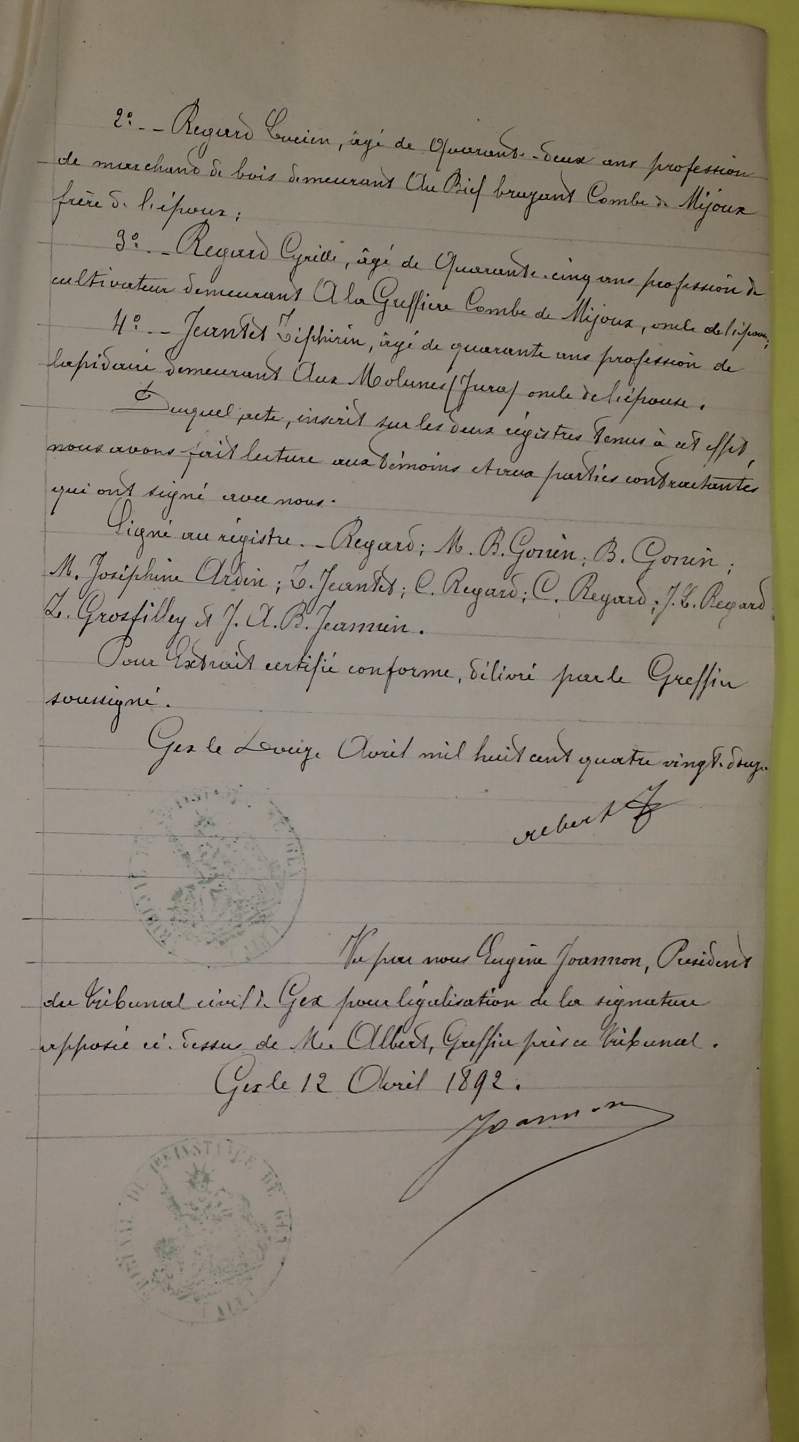 2º - - Regard Lucien, âgé de Quarante-deux ans profession
de marchand de bois demeurant Au Bief bruyant Combe de Mijoux
frère de l'époux ;
3º - - Regard Cyrille, âgé de Quarante-cinq ans profession de
cultivateur demeurant A la Greffière Combe de Mijoux, oncle de l'époux ;
4º - - Jeantet Zéphirin, âgé de quarante ans profession de
lapidaire demeurant Aux Molunes (Jura) oncle de l'épouse.
Duquel acte, inscrit sur les deux régistres tenus à cet effet,
nous avons fait lecture aux témoins et aux parties contractantes
qui ont signé avec nous.
Signé au régistre. - Regard ; M. B. Gonin ; B. Gonin ;
M. Joséphine Arbin ; Z. Jeantet ; C. Regard ; C. Regard ; J. Z. Regard
Z. Grosfilley et J. A. B. Jeannin.
Pour Extrait certifié conforme, délivré par le Greffier
soussigné.
Gex le Douze Avril mil huit cent quatre vingt-douze.
albert
Vu par nous Eugène Joannon, Président
du tribunal civil de Gex pour légalisation de la signature
apposée ci-dessus de Me Albert, Greffier près ce tribunal.
Gex le 12 Avril 1892.
Joannon